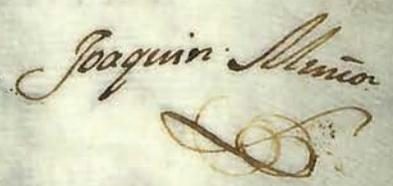 Joaquin Muñoz